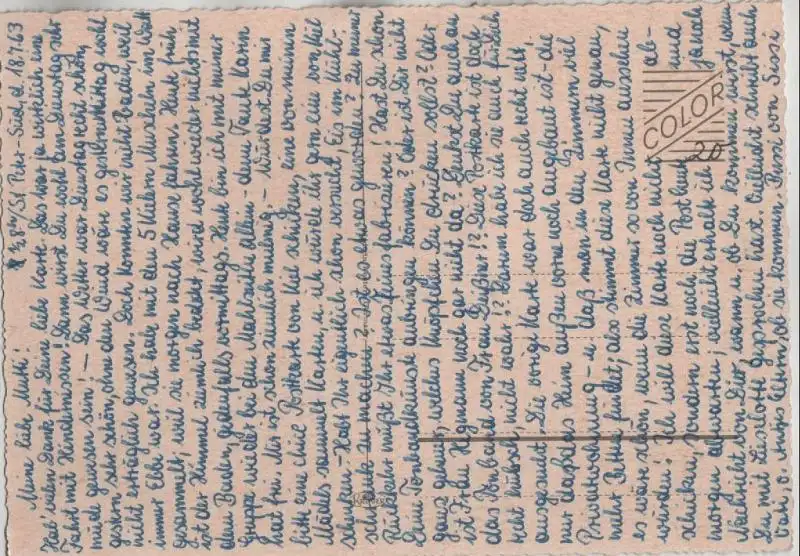 St. Peter-Süd, d. 18.7.63
Meine liebe Mutti!
Hab vielen Dank für Deine liebe Karte. Das war ja wirklich eine
Fahrt mit Hindernissen! Dann wirst Du wohl am Dienstag sehr
müde gewesen sein! – Das Wetter war Dienstag recht schön,
gestern sehr schön, ohne den Wind wär es gestern Mittag wohl
nicht erträglich gewesen. Doch konnten wir nicht baden, weil
immer Ebbe war. Ich habe mit den 5 Kindern Muscheln im Watt
gesammelt, weil sie morgen nach Hause fahren. Heute früh
ist der Himmel ziemlich bedeckt, wird wohl wieder nichts mit
dem Baden, jedenfalls vormittags. Heute bin ich mit meiner
Gruppe wieder bei der Mahlzeit allein – denn Tante Karin
hat frei. Mir ist schon ziemlich mulmig. – Würdest Du mir
bitte eine Postkarte von Kiel schicken, eine von meinen
Mädels sammelt Karten u. ich würde ihr gern eine von Kiel
schenken. – Habt Ihr eigentlich schon versucht, Eis im Kühl-
schrank zu machen? Ist es etwas geworden? Zu meiner
Rückkehr müßt Ihr etwas Eis fabrizieren! Hast Du schon
Deine Fernsehkünste anbringen können? Oder ist Dir nicht
ganz geheuer, welches Knöpfchen Du drücken sollst? Oder
ist Frau Hagmann noch gar nicht da? Denkst Du auch an
das von Frau Deißner!? Diese Postkarte ist doch
recht hübsch, nicht wahr!? Darum hab ich sie auch für Dich
ausgesucht. Die vorige Karte war doch auch recht nett,
nur daß das Heim außen vorne noch angebaut ist – die
Privatwohnung – u. daß man in den Zimmern viel
mehr Betten findet, also stimmt diese Karte nicht genau,
es wäre schön, wenn die Zimmer so von innen aussehen
würden! Ich will diese Karte noch nicht ab-
schicken, sondern erst noch die Post heute und
morgen abwarten, vielleicht erhalte ich ja
Nachricht von Dir, wann u. ob Du kommen wirst, wenn
Du mit Liselotte gesprochen hast. Vielleicht schreibt auch
od. Antjes Eltern, ob sie kommen. Bussi von Sussi
COLOR
20